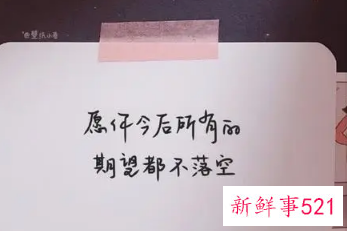 愿你今后所有的
期望都不落空
新鲜事521